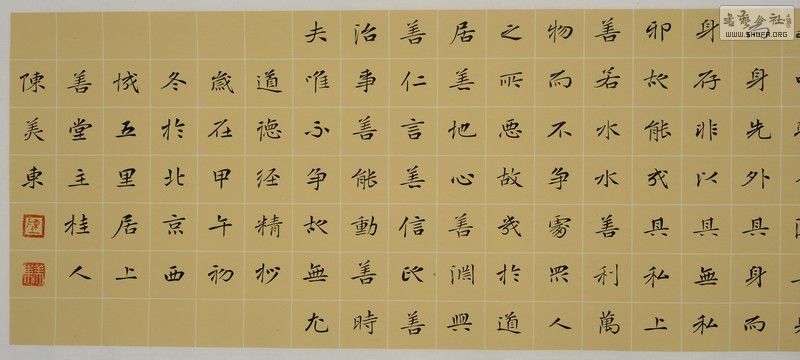 身先外其身而
身存非以其無私
邪故能成其私上
善若水水善利萬
物而不爭處眾人
之所惡故幾於道
居善地心善淵與
善仁言善信政善
治事善能動善時
夫唯不爭故無尤
道德經精抄
歲在甲午初
冬於北京西
城五里居上
善堂主桂人
陳美東